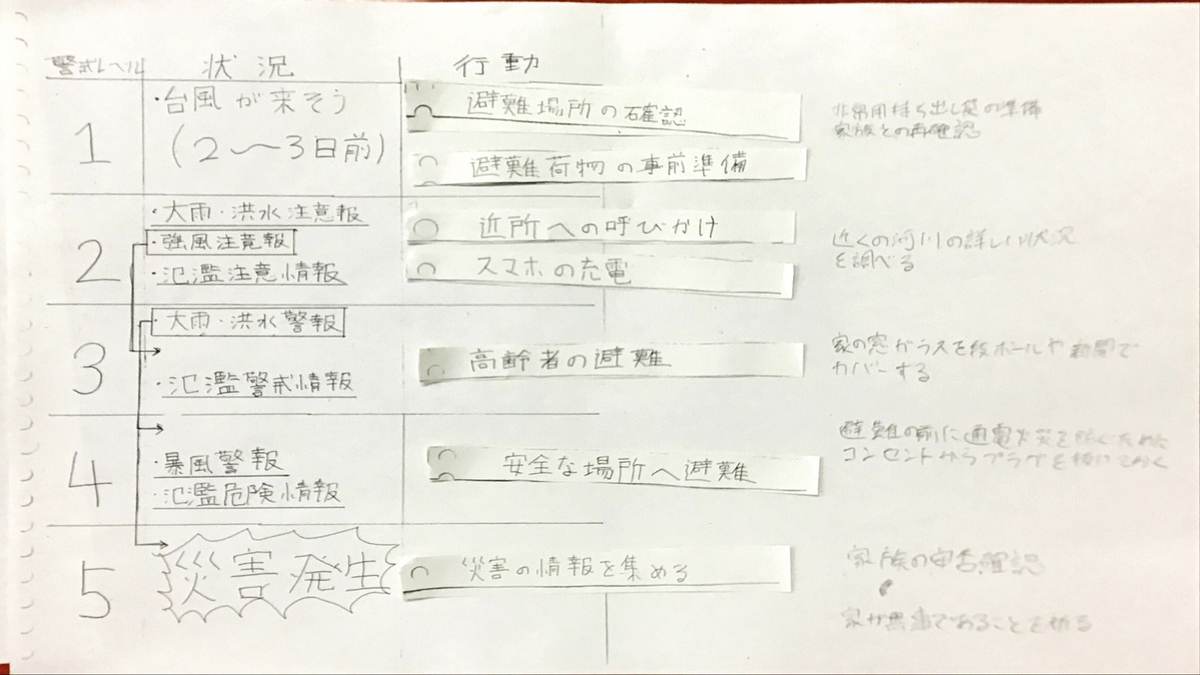 警戒レベル 状況 行動
1
・台風が来そう
(2〜3日前)
避難場所の確認
避難荷物の事前準備
非常用持ち出し袋の準備
家族との再確認
2
・大雨・洪水注意報
・強風注意報
・氾濫注意情報
近所への呼びかけ
スマホの充電
近くの河川の詳しい状況
を調べる
3
・大雨・洪水警報
・氾濫警戒情報
高齢者の避難
家の窓ガラスを段ボールや新聞で
カバーする
4
・暴風警報
・氾濫危険情報
安全な場所へ避難
避難の前に通電火災を防ぐため
コンセントからプラグを抜いておく
5
災害発生
災害の情報を集める
家族の安否確認
家が無事であることを祈る